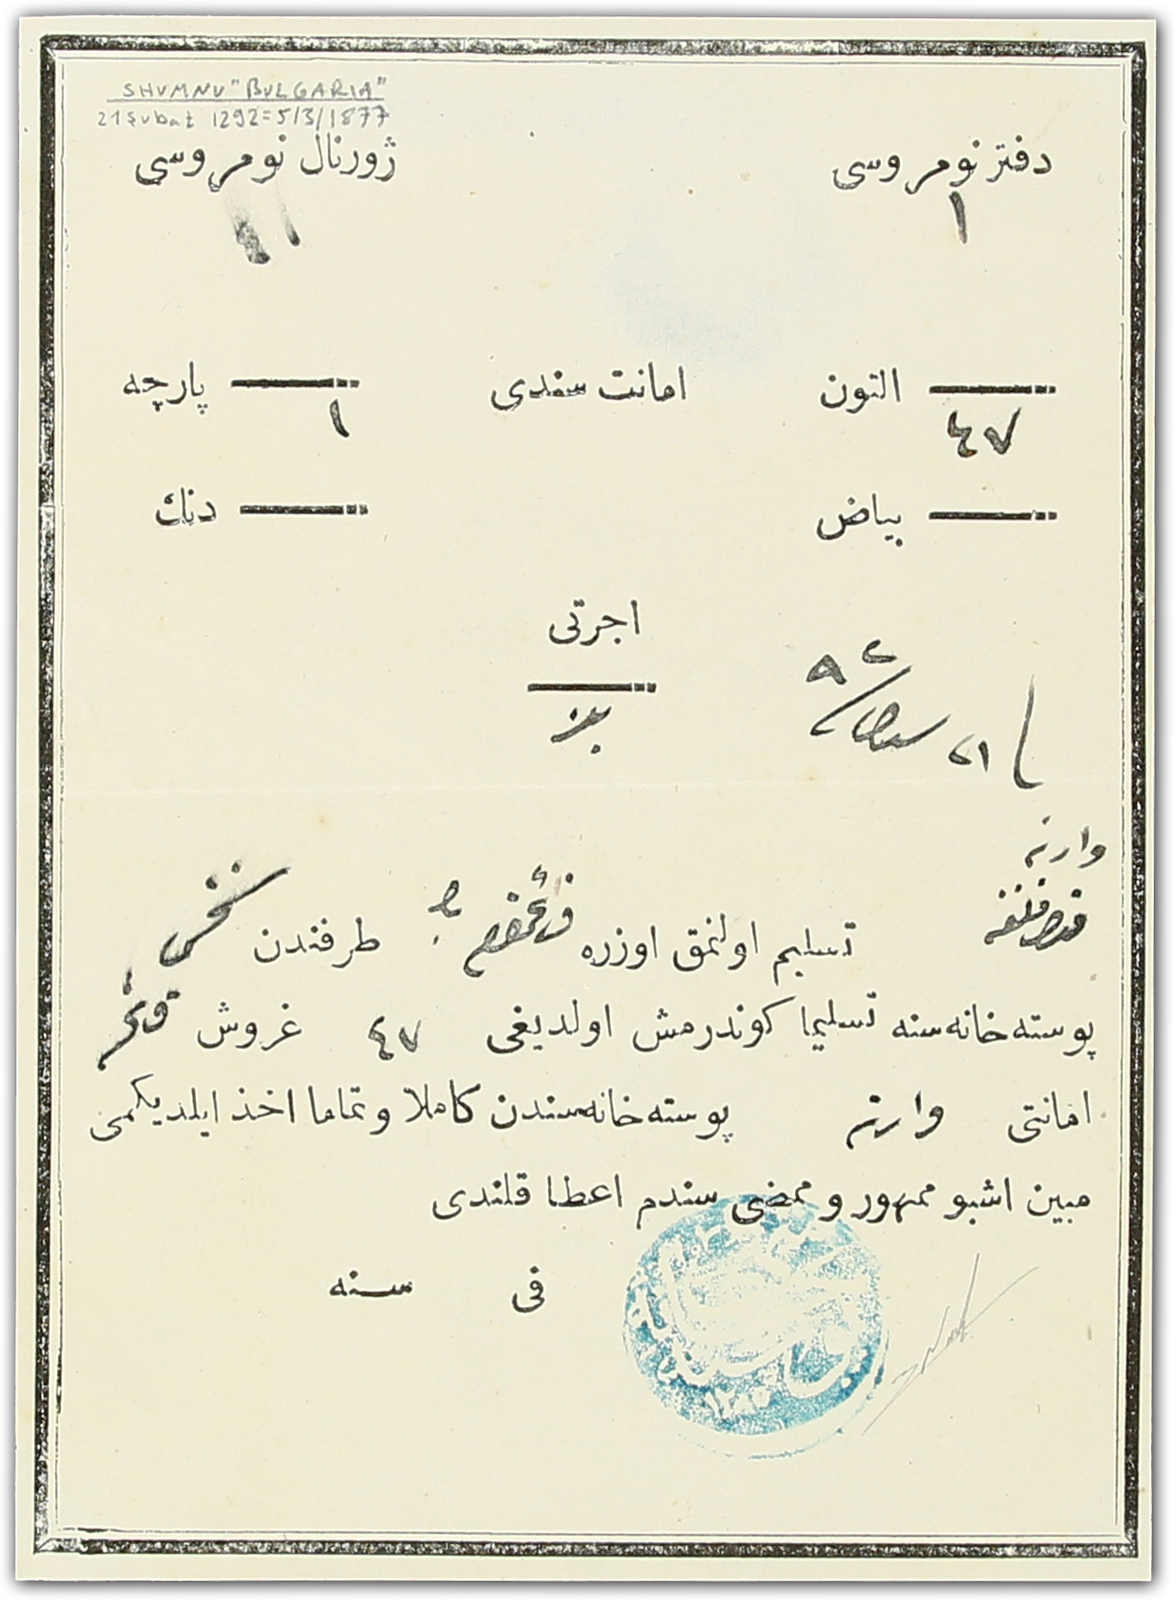 SHUMNU "BULGARIA"
21 şubat 1292=5/3/1877
دفتر نومروسی
ژورنال نومروسی
١
التون
امانت سندی
پارچه
٤٧
١
بیاض
دنك
اجرتی
وارنه
تسلیم اولنمق اوزره طرفندن
پوسته‌خانه‌سنه تسلیما كوندرمش اولدیغی ٤٧ غروش
امانتی وارنه پوسته‌خانه‌سندن كاملا و تماما اخذ ایلدیكمی
مبین اشبو ممهور و ممضی سندم اعطا قلندی
فی سنه